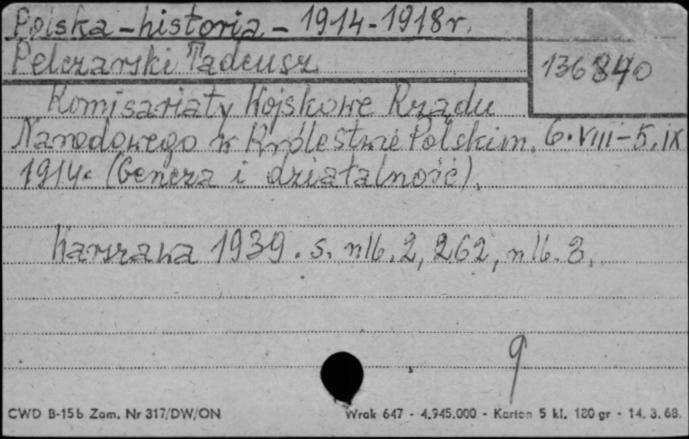 Polska - historia - 1914-1918 r.
Pelczarski Tadeusz
136840
Komisariaty Wojskowe Rządu
Narodowego w Królestwie Polskim. 6.VIII-5.IX
1914. (Geneza i działalność).
Warszawa 1939. s. nlb. 2, 262, nlb. 3.
9
CWD B-15b Zam. Nr 317/DW/ON
Wrak 647 - 4.945.000 - Karton 5 kl. 180 gr - 14. 3. 68.